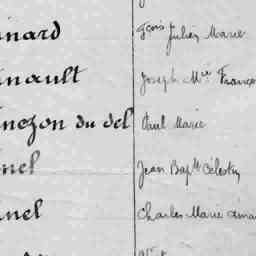 inard fçois Julien Marie
inault Joseph Mie Franço
inezon du sel Paul Marie
inel Jean Bapte Célestin
inel Charles Marie Aima